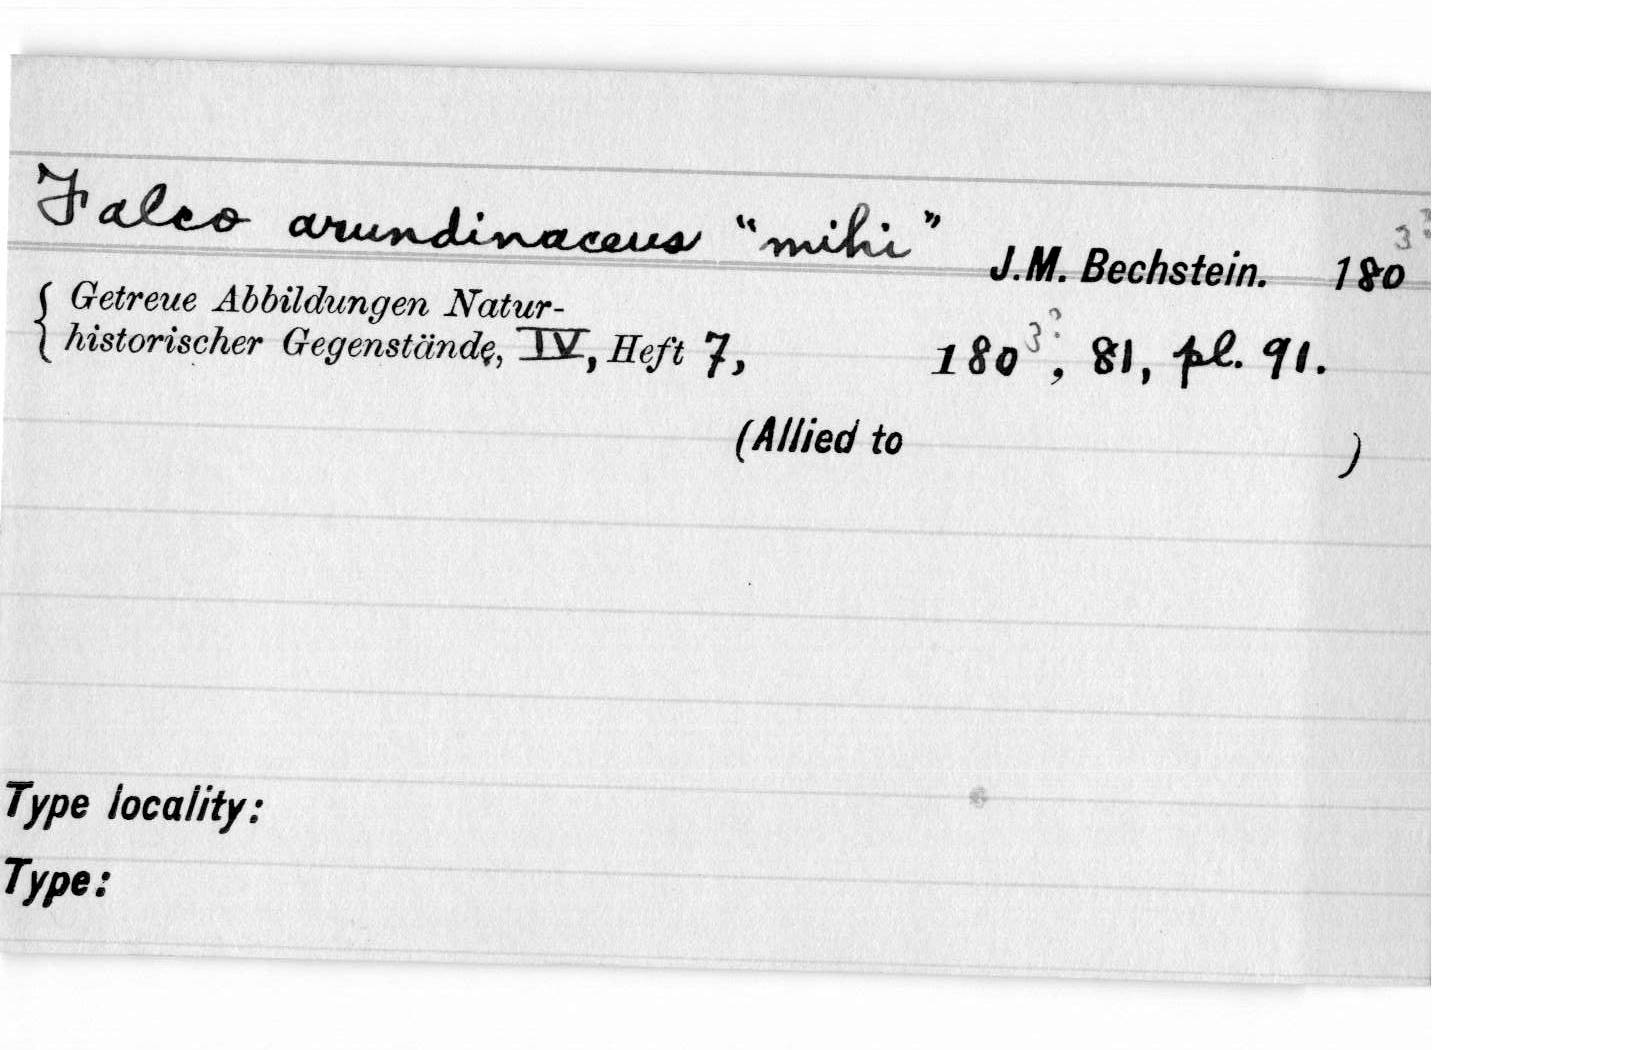 Falco arundinaceus “mihi” J.M. Bechstein. 1803?
{ Getreue Abbildungen Natur-
historischer Gegenstände, IV, Heft 7, 1803?, 81, pl. 91.
(Allied to )
Type locality:
Type: